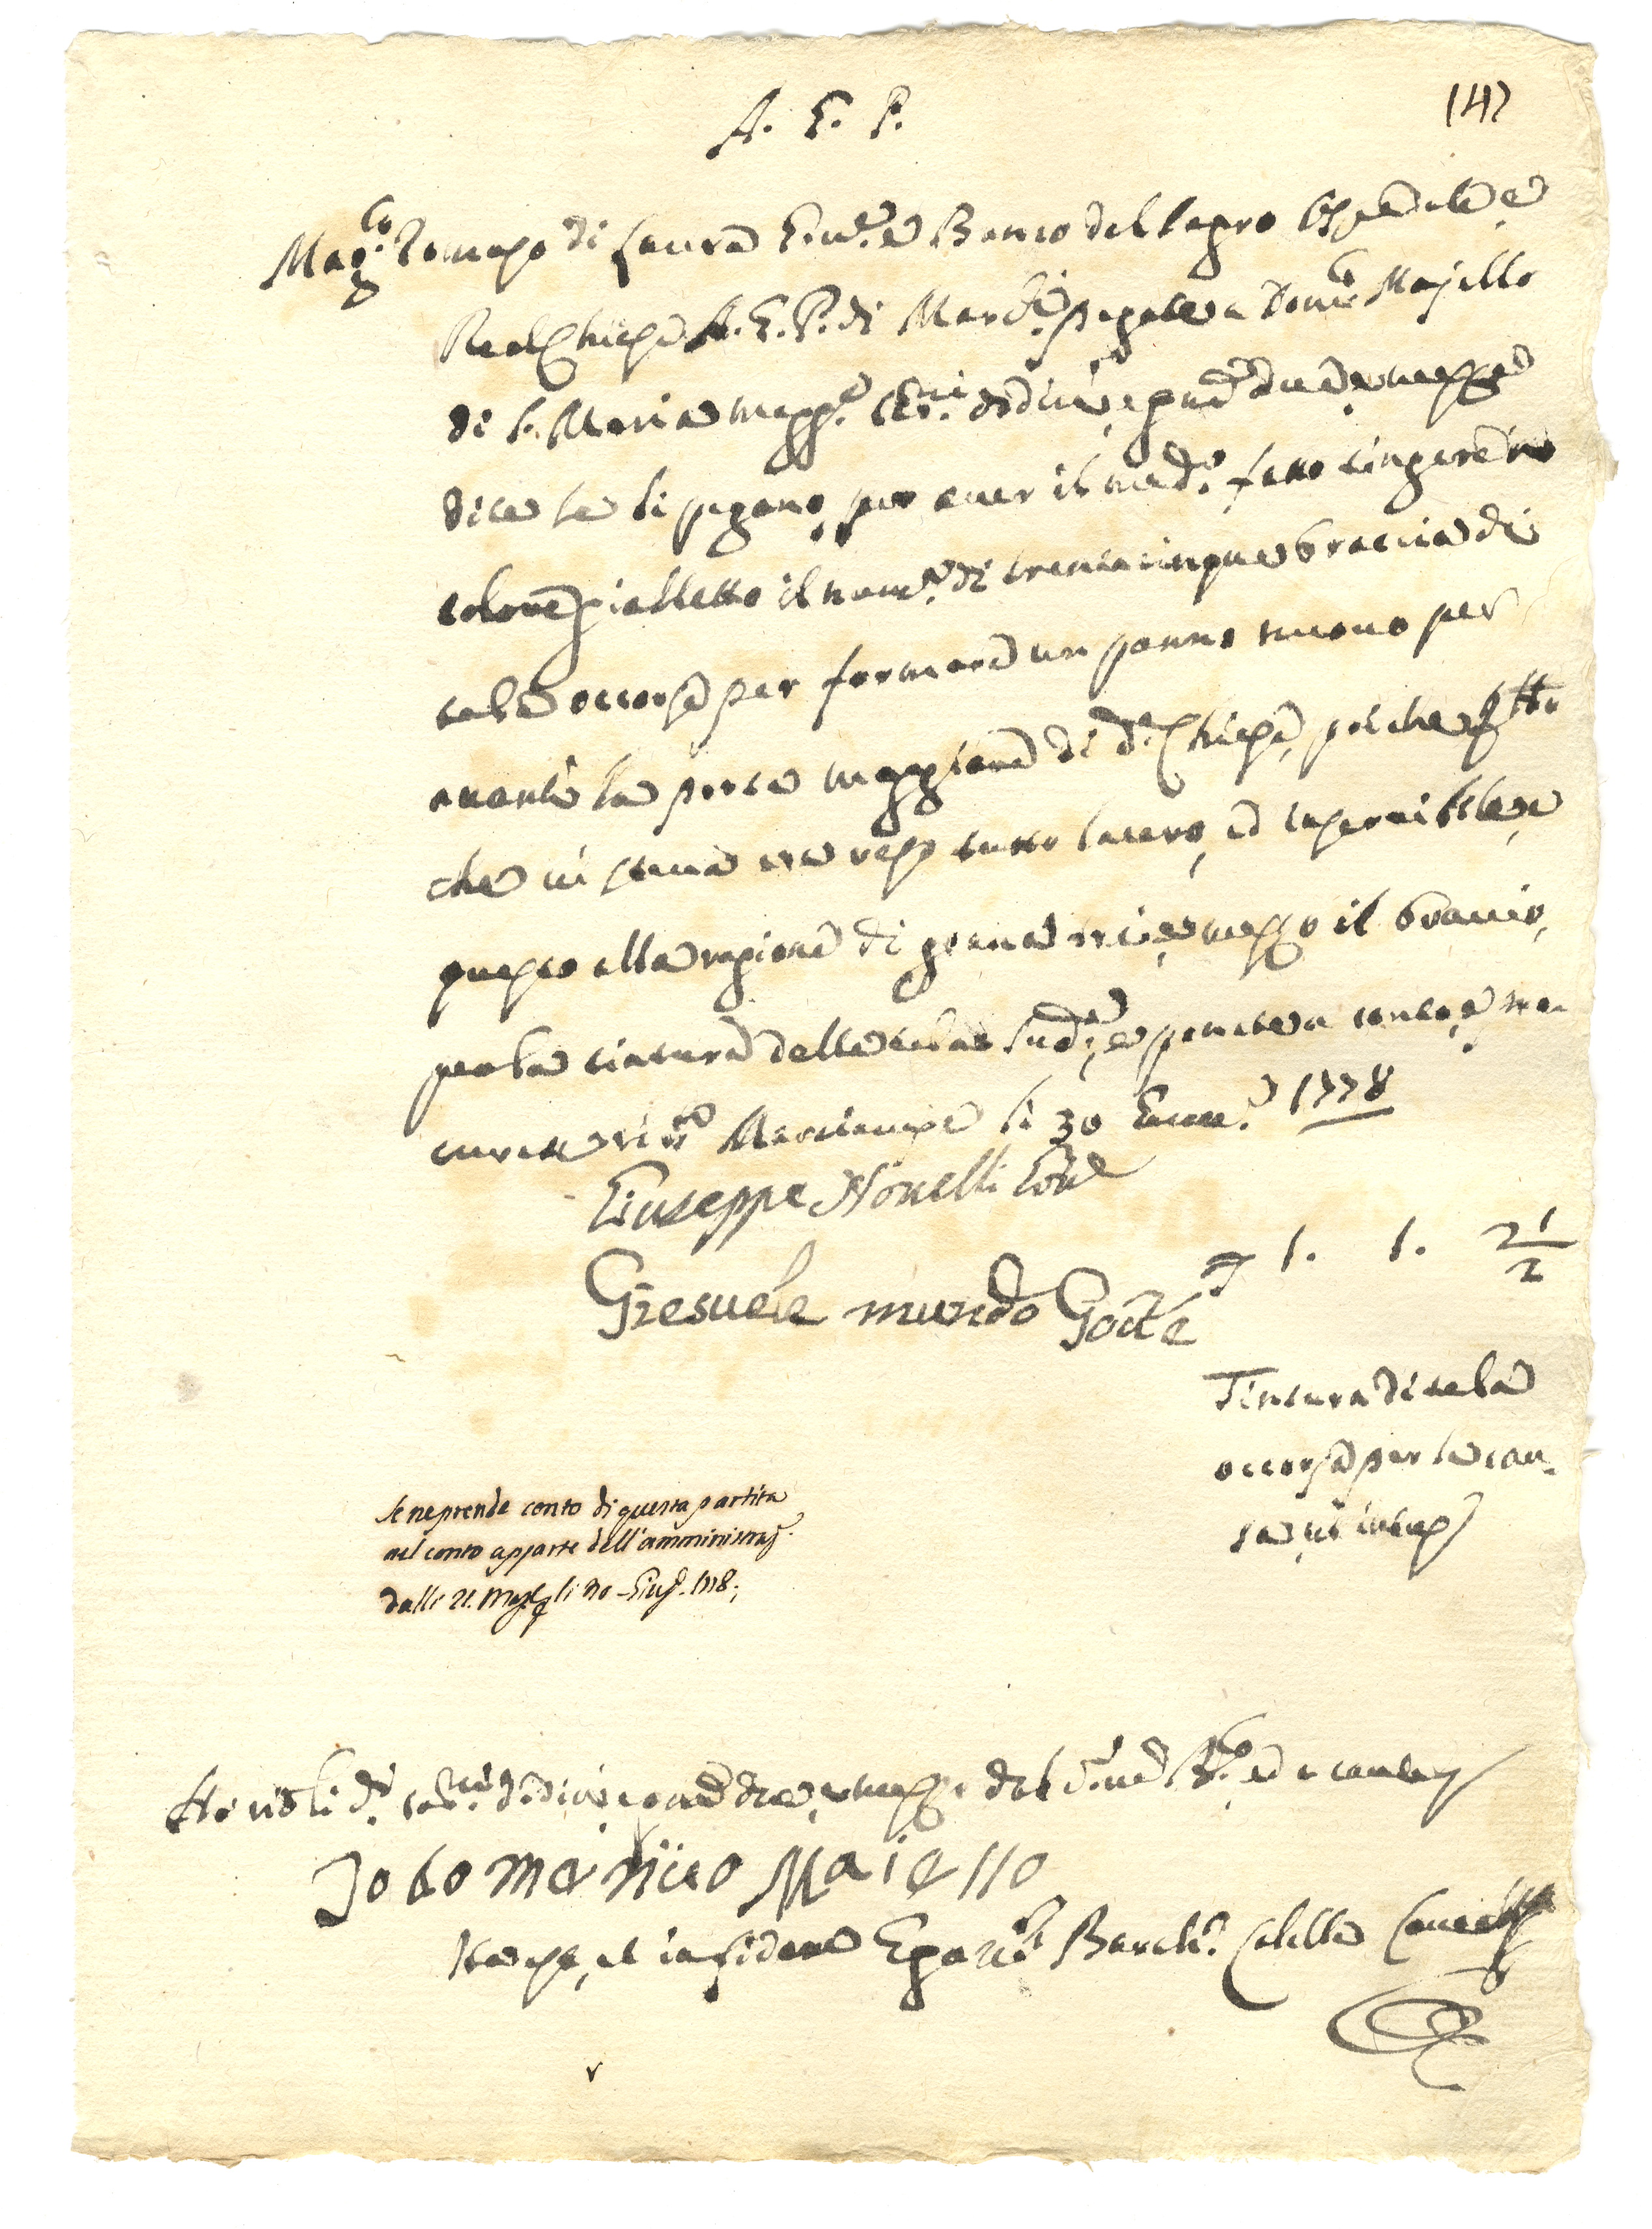 A. G. P.
(4)
Mag.co Tomaso di Laura Gov.re e Banco del Sagro Ospedale e
Real Chiesa A. G. P. di Marc.se pagate a Dom.co Majello
di S. Maria magg.e carlini dodici, e grana due, e mezzo
dite se li pagano per aver il med.o fatto tingere in
colore gialletto il num.o di trentacinque braccia di
tela occorsa per formare un panno nuovo per
avanti la porta maggiore di d.a Chiesa, poiche q.llo
che vi stava era reso tutto lacero, ed inservibile, e
questo alla ragione di grana tre, e mezzo il braccio
per la tintura della tela sud.a, e ponete a conto, e
Marcianise li 30 Genn.o 1778
Giuseppe Novelli Gov.re
Giesuele mundo Gov.re
1. 1. 2 1/2
Tintura di tela
occorsa per la cau-
sa, ut intus
Se ne prende conto di questa partita
nel conto apparte dell'amministraz.
dalli 21. Mag. p li 30 Giug. 1778.;
Ho ric.to li d.i carlini dodici, e grana due, e mezzo dal
Io domenicco Maiello
Ita est, et in fidem Ego Not.r Barth.s Calella